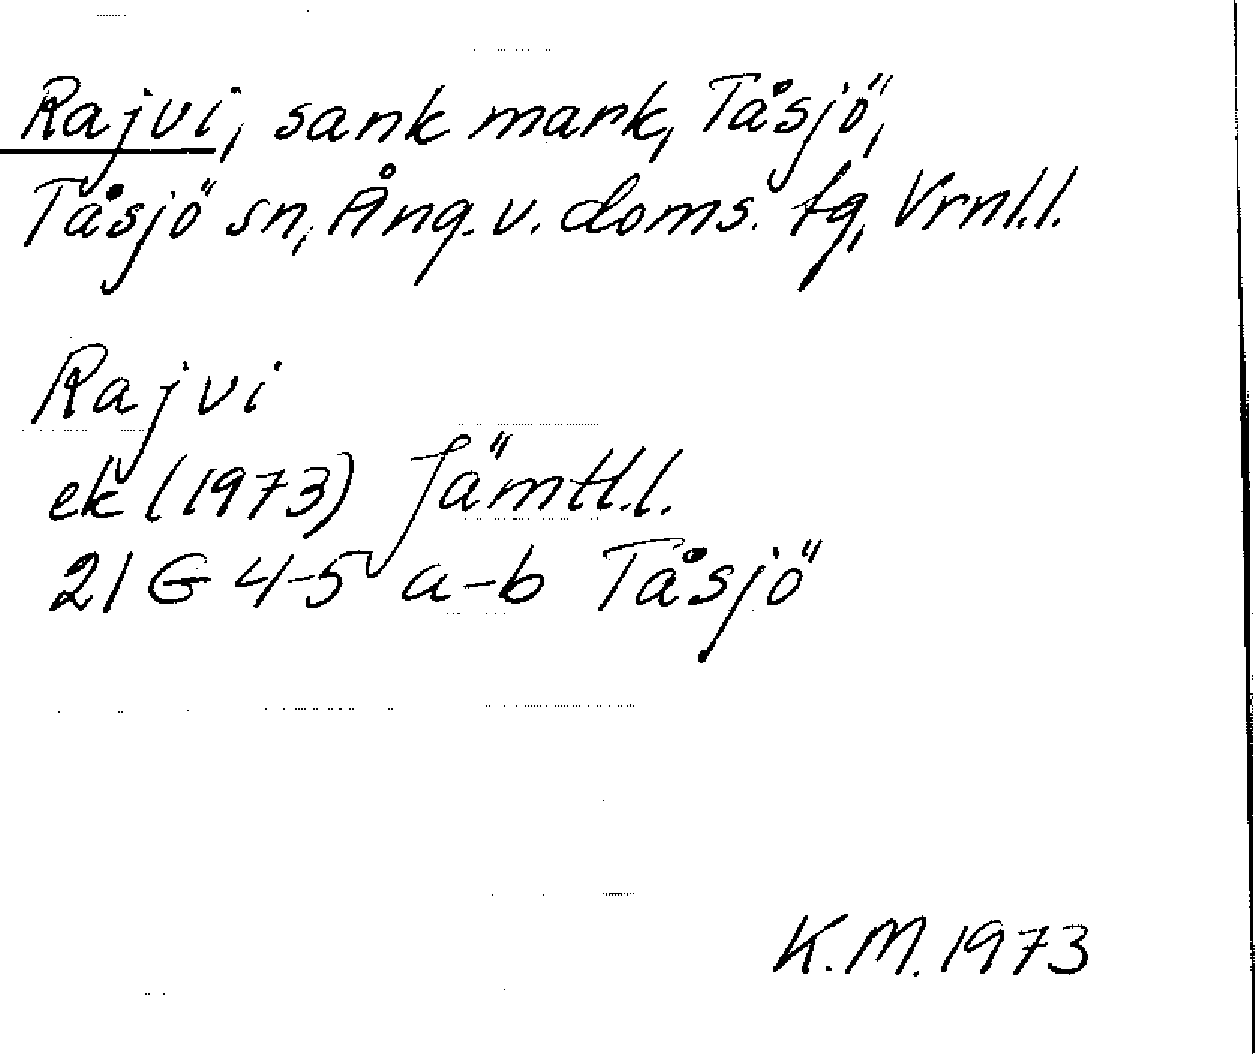 Rajvi, sank mark, Tåsjö,
Tåsjö sn, Ång. v. doms. tg, Vrnl.l.
Rajvi
ek (1973) Jämtl.l.
21 G 4-5 a-b Tåsjö
K.M. 1973